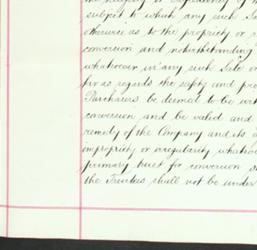 subject to which any such Sa
otherwise as to the propriety or r
conversion and notwithstanding
whatsoever in any such Sale or
far as regards the safety and pro
Purchasers be deemed to be wit
conversion and be valid and
remedy of the Company and its a
impropriety or irregularity whatso
primary trust for conversion s
the Trustees shall not be under